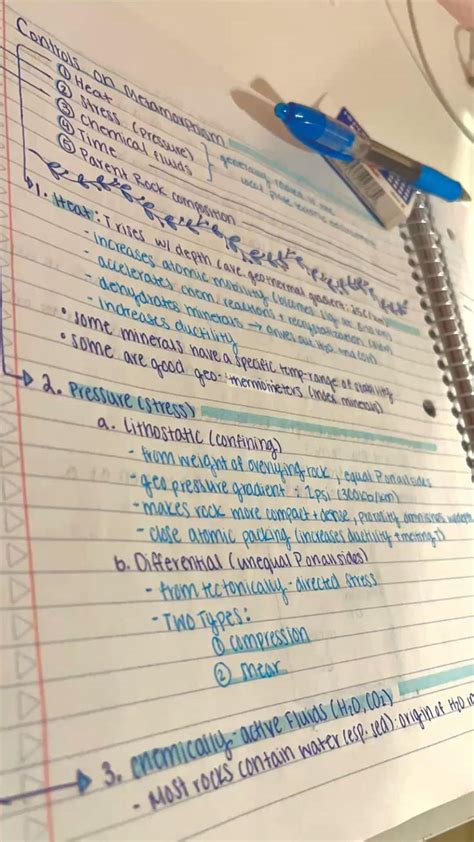 Controls on Metamorphism
① Heat
② Stress (pressure)
③ Chemical fluids
④ Time
⑤ Parent Rock composition
1. Heat: T rises w/ depth (ave. geothermal gradient: 25C/km)
- increases atomic mobility
- accelerates chem. reactions + recrystallization
- dehydrates minerals → drives out H2O and CO2
- increases ductility
• some minerals have a specific temp-range of stability
• some are good geo-thermometers (index minerals)
2. Pressure (stress)
a. Lithostatic (confining)
- from weight of overlying rock, equal P on all sides
- geopressure gradient:
- makes rock more compact + dense, porosity
- close atomic packing (increases ductility + melting T)
b. Differential (unequal P on all sides)
- from tectonically-directed stress
- TWO TYPES:
① compression
② shear
3. chemically-active Fluids (H2O, CO2)
- Most rocks contain water (esp. sed): origin of H2O